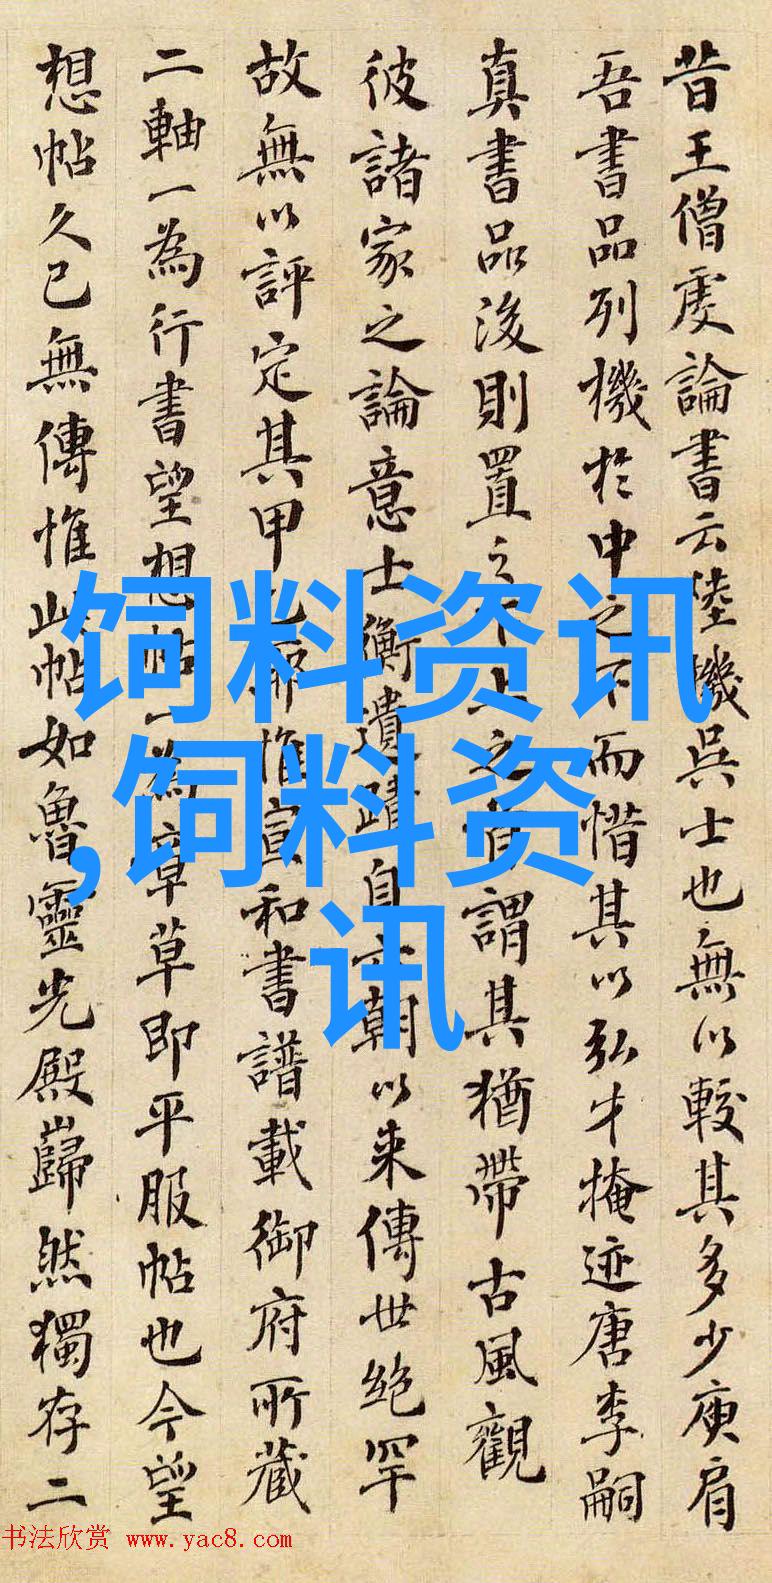 昔王僧虔論書云陸機吳士也無以較其多少庾肩
吾書品列機於中之下而惜其以弘才掩迹唐李嗣
真書品後則置之下上之首謂其猶帶古風觀
彼諸家之論意士衡遺蹟自六朝以来傳世絶罕
故無以評定其甲乙耶惟宣和書譜載御府所藏
二軸一為行書望想帖一為章草即平服帖也今望
想帖久已無傳惟此帖如魯靈光殿巋然獨存二
饲料资讯
,饲料资
讯
书法欣赏 www.yac8.com